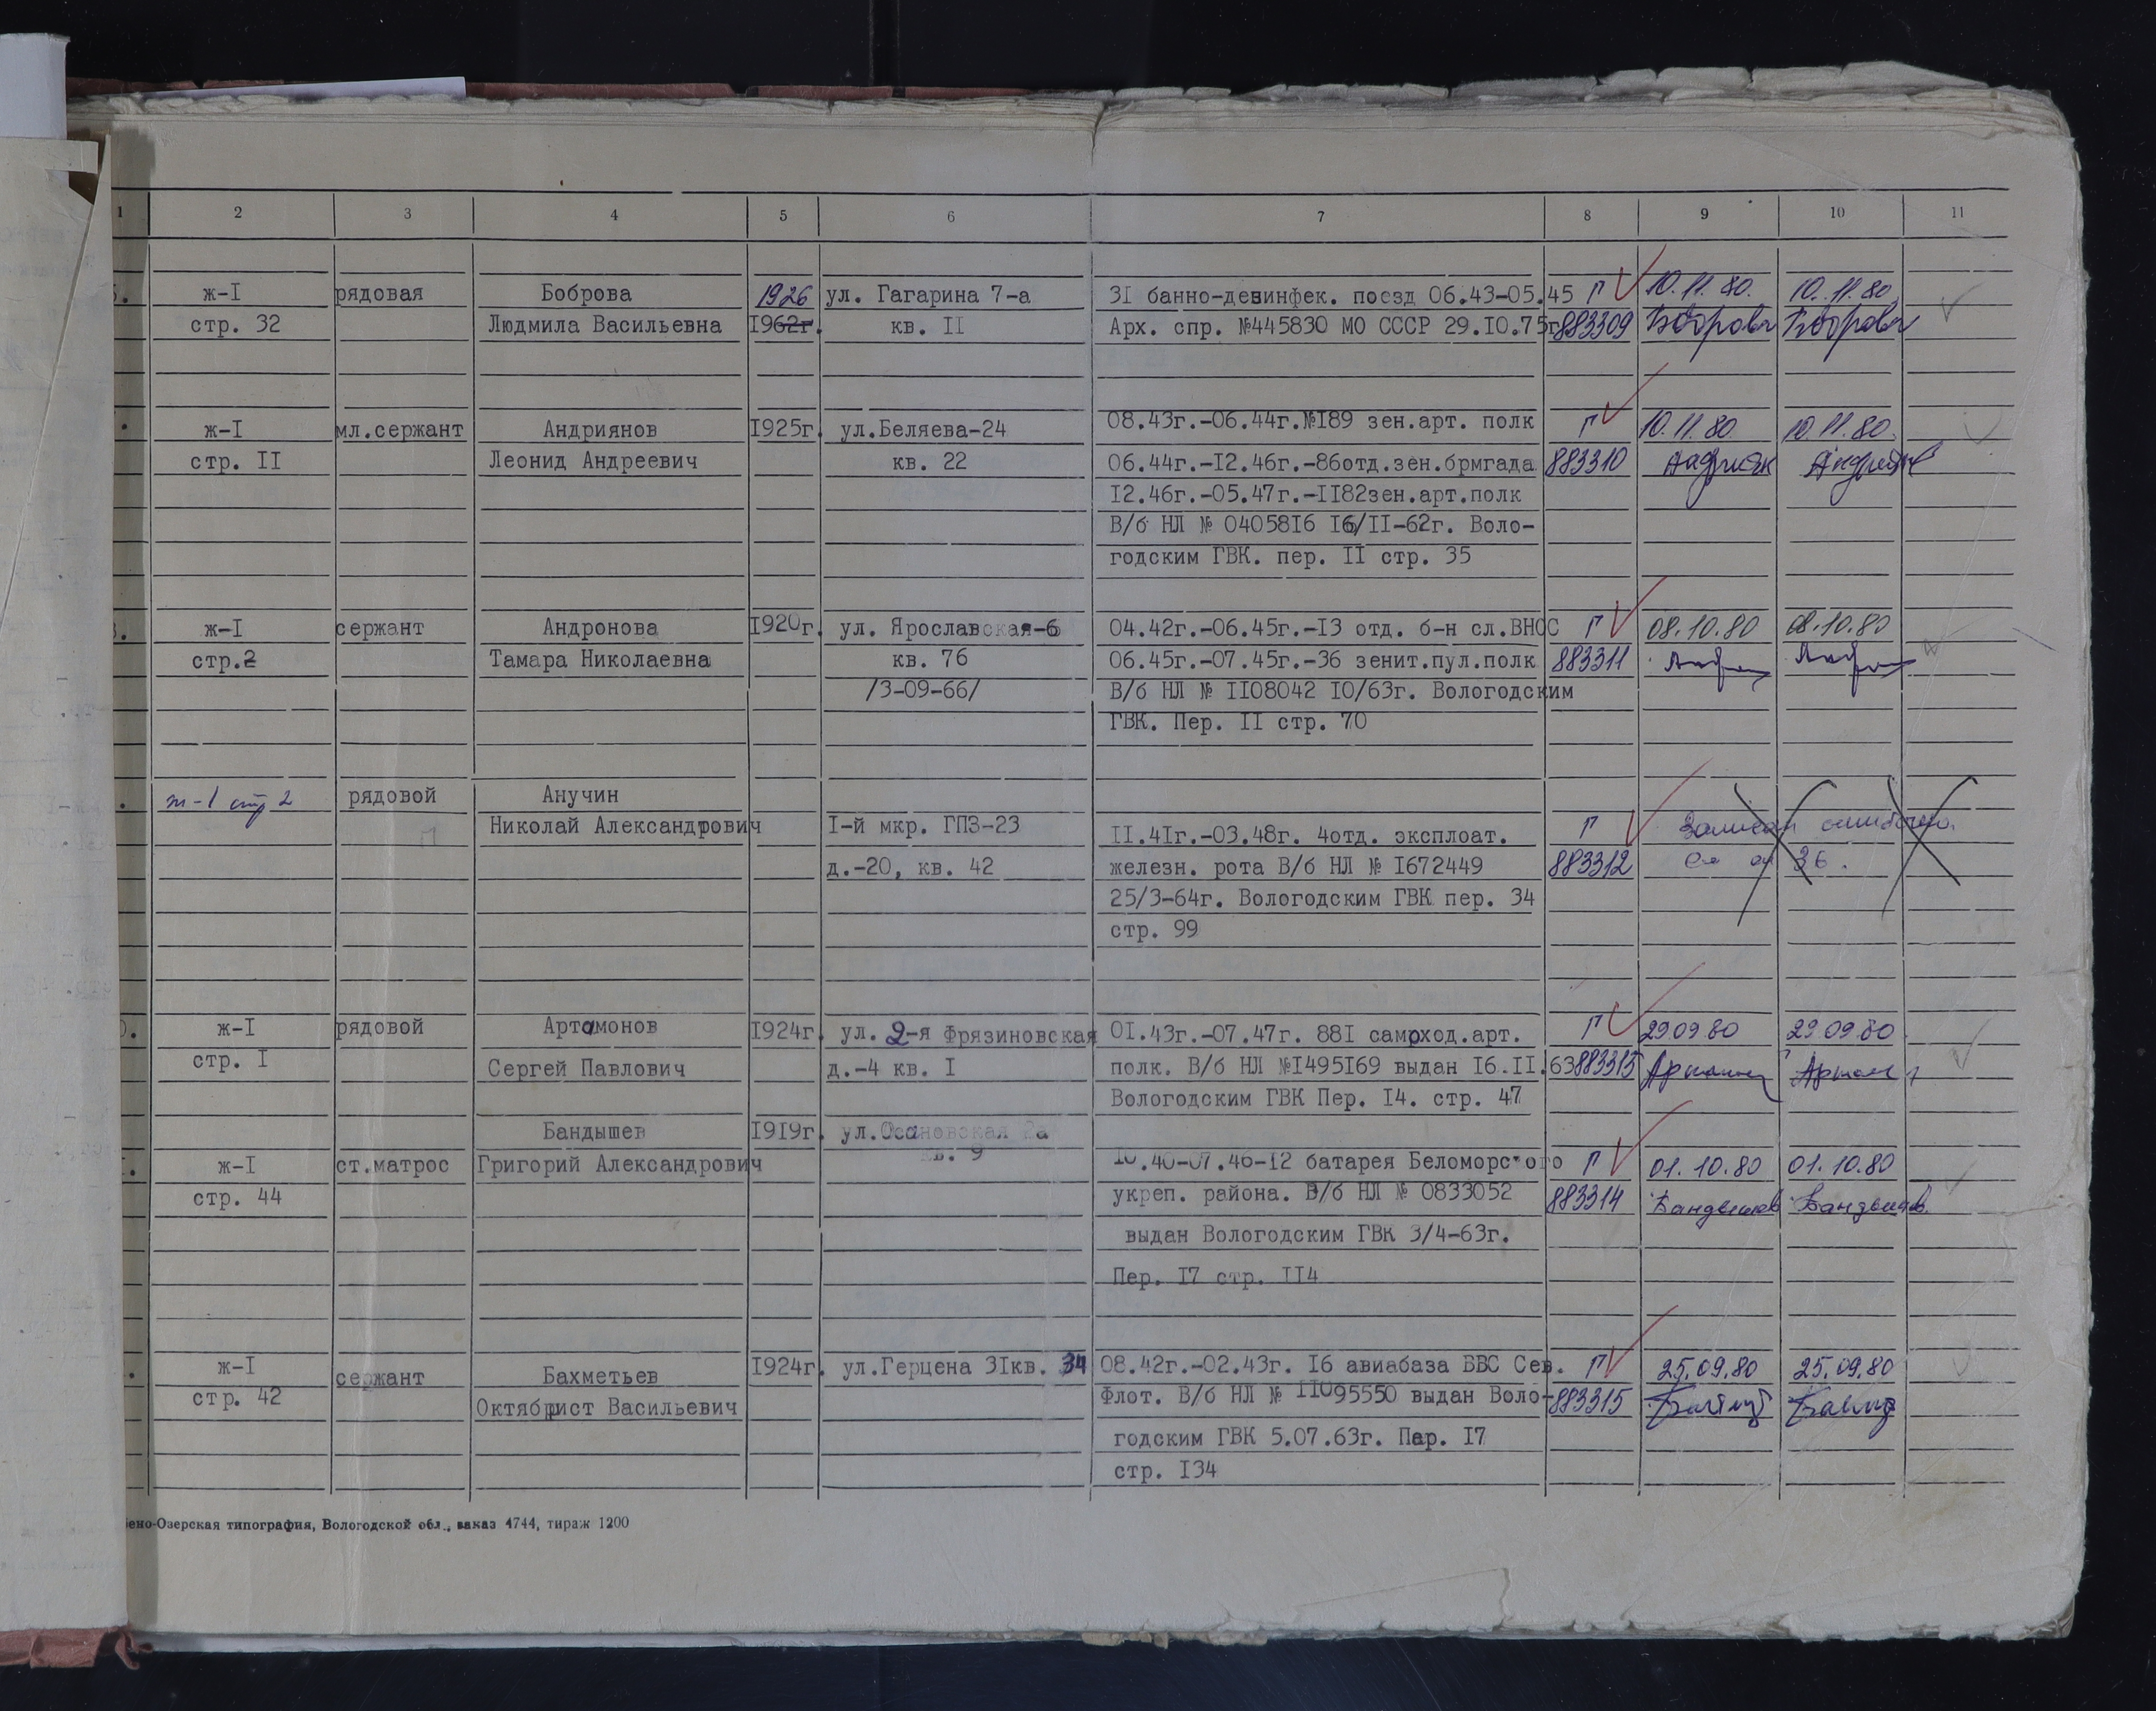 1 2 3 4 5 6 7 8 9 10 11
ж-I рядовая Боброва 1926 ул. Гагарина 7-а 3I банно-дезинфек. поезд 06.43-05.45 Г 10.11.80. 10.11.80
стр. 32 Людмила Васильевна I962г. кв. II Арх. спр. №445830 МО СССР 29.I0.75г 883309 Боброва Боброва
ж-I мл.сержант Андриянов I925г. ул.Беляева-24 08.43г.-06.44г.№I89 зен.арт. полк Г 10.11.80 10.11.80.
стр. II Леонид Андреевич кв. 22 06.44г.-I2.46г.-86отд.зен.брмгада 883310
I2.46г.-05.47г.-II82зен.арт.полк
В/б НЛ № 04058I6 I6/II-62г. Воло-
годским ГВК. пер. II стр. 35
ж-I сержант Андронова I920г. ул. Ярославская-6 04.42г.-06.45г.-I3 отд. б-н сл.ВНОС Г 08.10.80 08.10.80
стр.2 Тамара Николаевна кв. 76 06.45г.-07.45г.-36 зенит.пул.полк 883311
/3-09-66/ В/б НЛ № II08042 I0/63г. Вологодским
ГВК. Пер. II стр. 70
ж-1 стр 2 рядовой Анучин
Николай Александрович I-й мкр. ГПЗ-23 II.4Iг.-03.48г. 4отд. эксплоат. Г Записан ошибочно.
д.-20, кв. 42 железн. рота В/б НЛ № I672449 883312 36.
25/3-64г. Вологодским ГВК пер. 34
стр. 99
ж-I рядовой Артамонов I924г. ул. 2-я Фрязиновская 0I.43г.-07.47г. 88I самоход.арт. Г 29.09.80 29.09.80
стр. I Сергей Павлович д.-4 кв. I полк. В/б НЛ №I495I69 выдан I6.II.63 883313
Вологодским ГВК Пер. I4. стр. 47
Бандышев I9I9г. ул.Осановская 2а
ж-I ст.матрос Григорий Александрович кв. 9 I0.40-07.46-I2 батарея Беломорского Г 01.10.80 01.10.80
стр. 44 укреп. района. В/б НЛ № 0833052 883314 Бандышев Бандышев
выдан Вологодским ГВК 3/4-63г.
Пер. I7 стр. II4
ж-I сержант Бахметьев I924г. ул.Герцена 3Iкв. 34 08.42г.-02.43г. I6 авиабаза ВВС Сев. Г 25.09.80 25.09.80
стр. 42 Октябрист Васильевич Флот. В/б НЛ № II095550 выдан Воло- 883315
годским ГВК 5.07.63г. Пер. I7
стр. I34
ено-Озерская типография, Вологодской обл., заказ 4744, тираж 1200